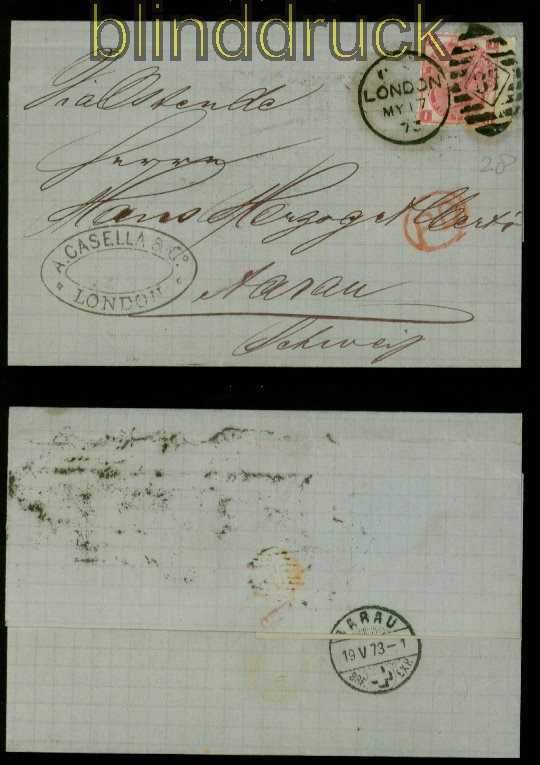 blinddruck
Via Ostende
LONDON
MY 17
73
Herrn
28
Hans Herzog
PD
A. CASELLA & Co.
LONDON
Aarau
Schweiz
AARAU
19 V 73-1
BRF. EXP.